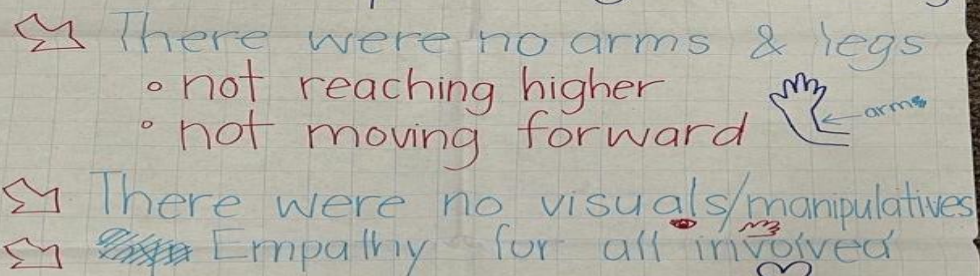 There were no arms & legs
• not reaching higher
• not moving forward
arms
There were no visuals/manipulatives
Empathy for all involved